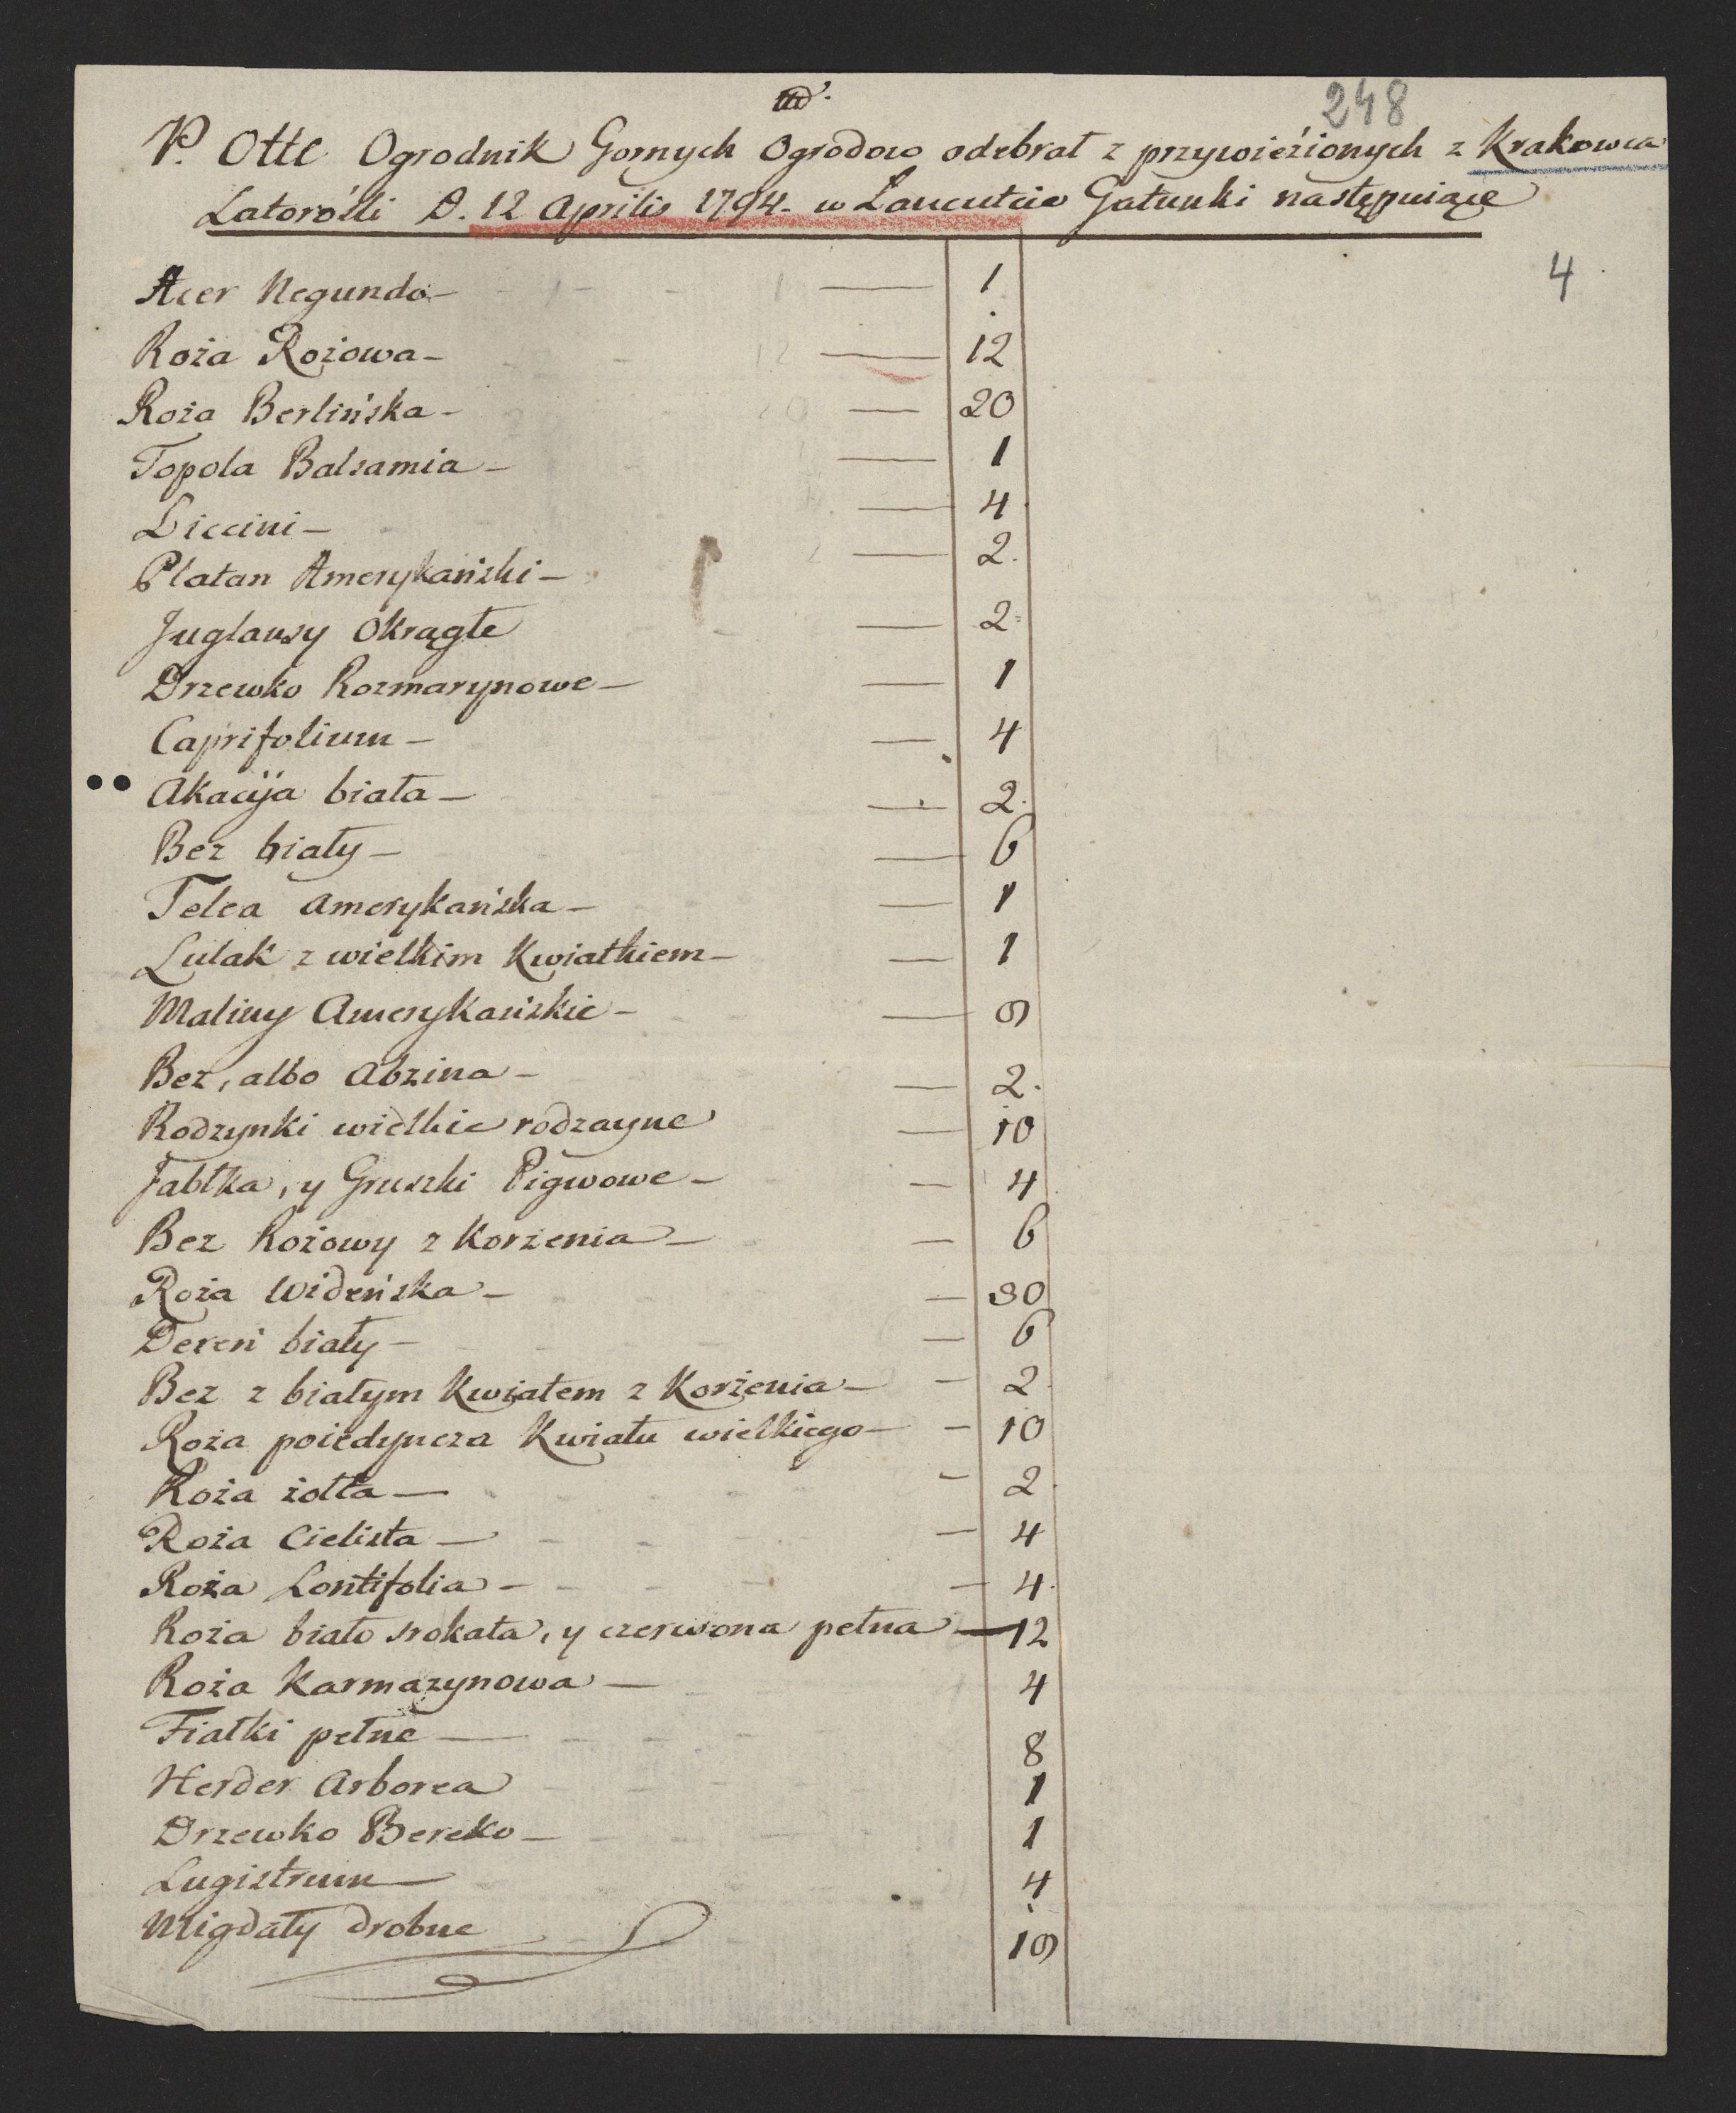 248
P. Otte Ogrodnik Gornych Ogrodow odebrał z przywieźionych z Krakowca
Latorośli D. 12 Aprilis 1794. w Łancutcie Gatunki następuiące
4
Acer Negundo — 1
Roża Rożowa — 12
Roża Berlińska — 20
Topola Balsamia — 1
Liccini — 4
Platan Amerykański — 2.
Juglansy Okrągłe — 2
Drzewko Rozmarynowe — 1
Caprifolium — 4
Akacÿja biała — 2.
Bez biały — 6
Telea Amerykańska — 1
Lulak z wielkim Kwiatkiem — 1
Maliny Amerykańskie — 9
Bez, albo Abzina — 2.
Rodzynki wielkie rodzayne — 10
Jabłka, y Gruszki Pigwowe — 4
Bez Rożowy z Korzenia — 6
Roża Wideńska — 30
Dereń biały — 6
Bez z białym Kwiatem z Korżenia — 2
Roża poiedyncza Kwiatu wielkiego — 10
Roża żołta — 2
Roża Cielista — 4
Roża Lontifolia — 4.
Roża biało srokata, y czerwona pełna — 12
Roża Karmazynowa — 4
Fiałki pełne — 8
Herder Arborea 1
Drzewko Bereko — 1
Lugistrum — 4
Migdały drobne 19